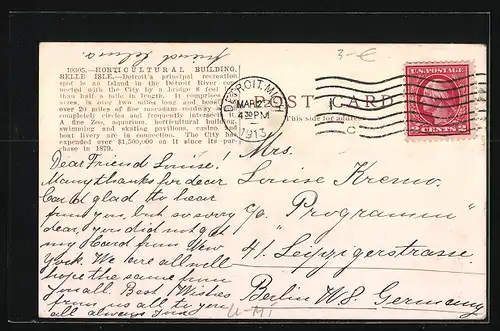 friend
3-€
19305.—HORTICULTURAL BUILDING,
BELLE ISLE.—Detroit's principal recreation
spot is an Island in the Detroit River con-
nected with the City by a bridge
than half a mile in length. It comprises
acres, is over two miles long and
over 20 miles of fine macadam roadway
completely circles and frequently intersects it.
A fine Zoo, aquarium, horticultural building,
swimming and skating pavilions, casino and
boat livery are in connection. The City has
expended over $1,500,000 on it since its pur-
chase in 1879.
DETROIT, MI
MAR 22
4 30 PM
1913
C
POST CARD
This side for address
U.S. POSTAGE
2 CENTS 2
Dear Friend Louise!
Many thanks for dear
Card glad to hear
from you, but so sorry
dear, you did not get
my Card from New
York. We are all well
hope the same from
you all. Best Wishes
from us all to you
all always your
Mrs.
Louise Kremo.
c/o "Programm"
41. Leipzigerstrasse.
Berlin W8. Germany
U-MI